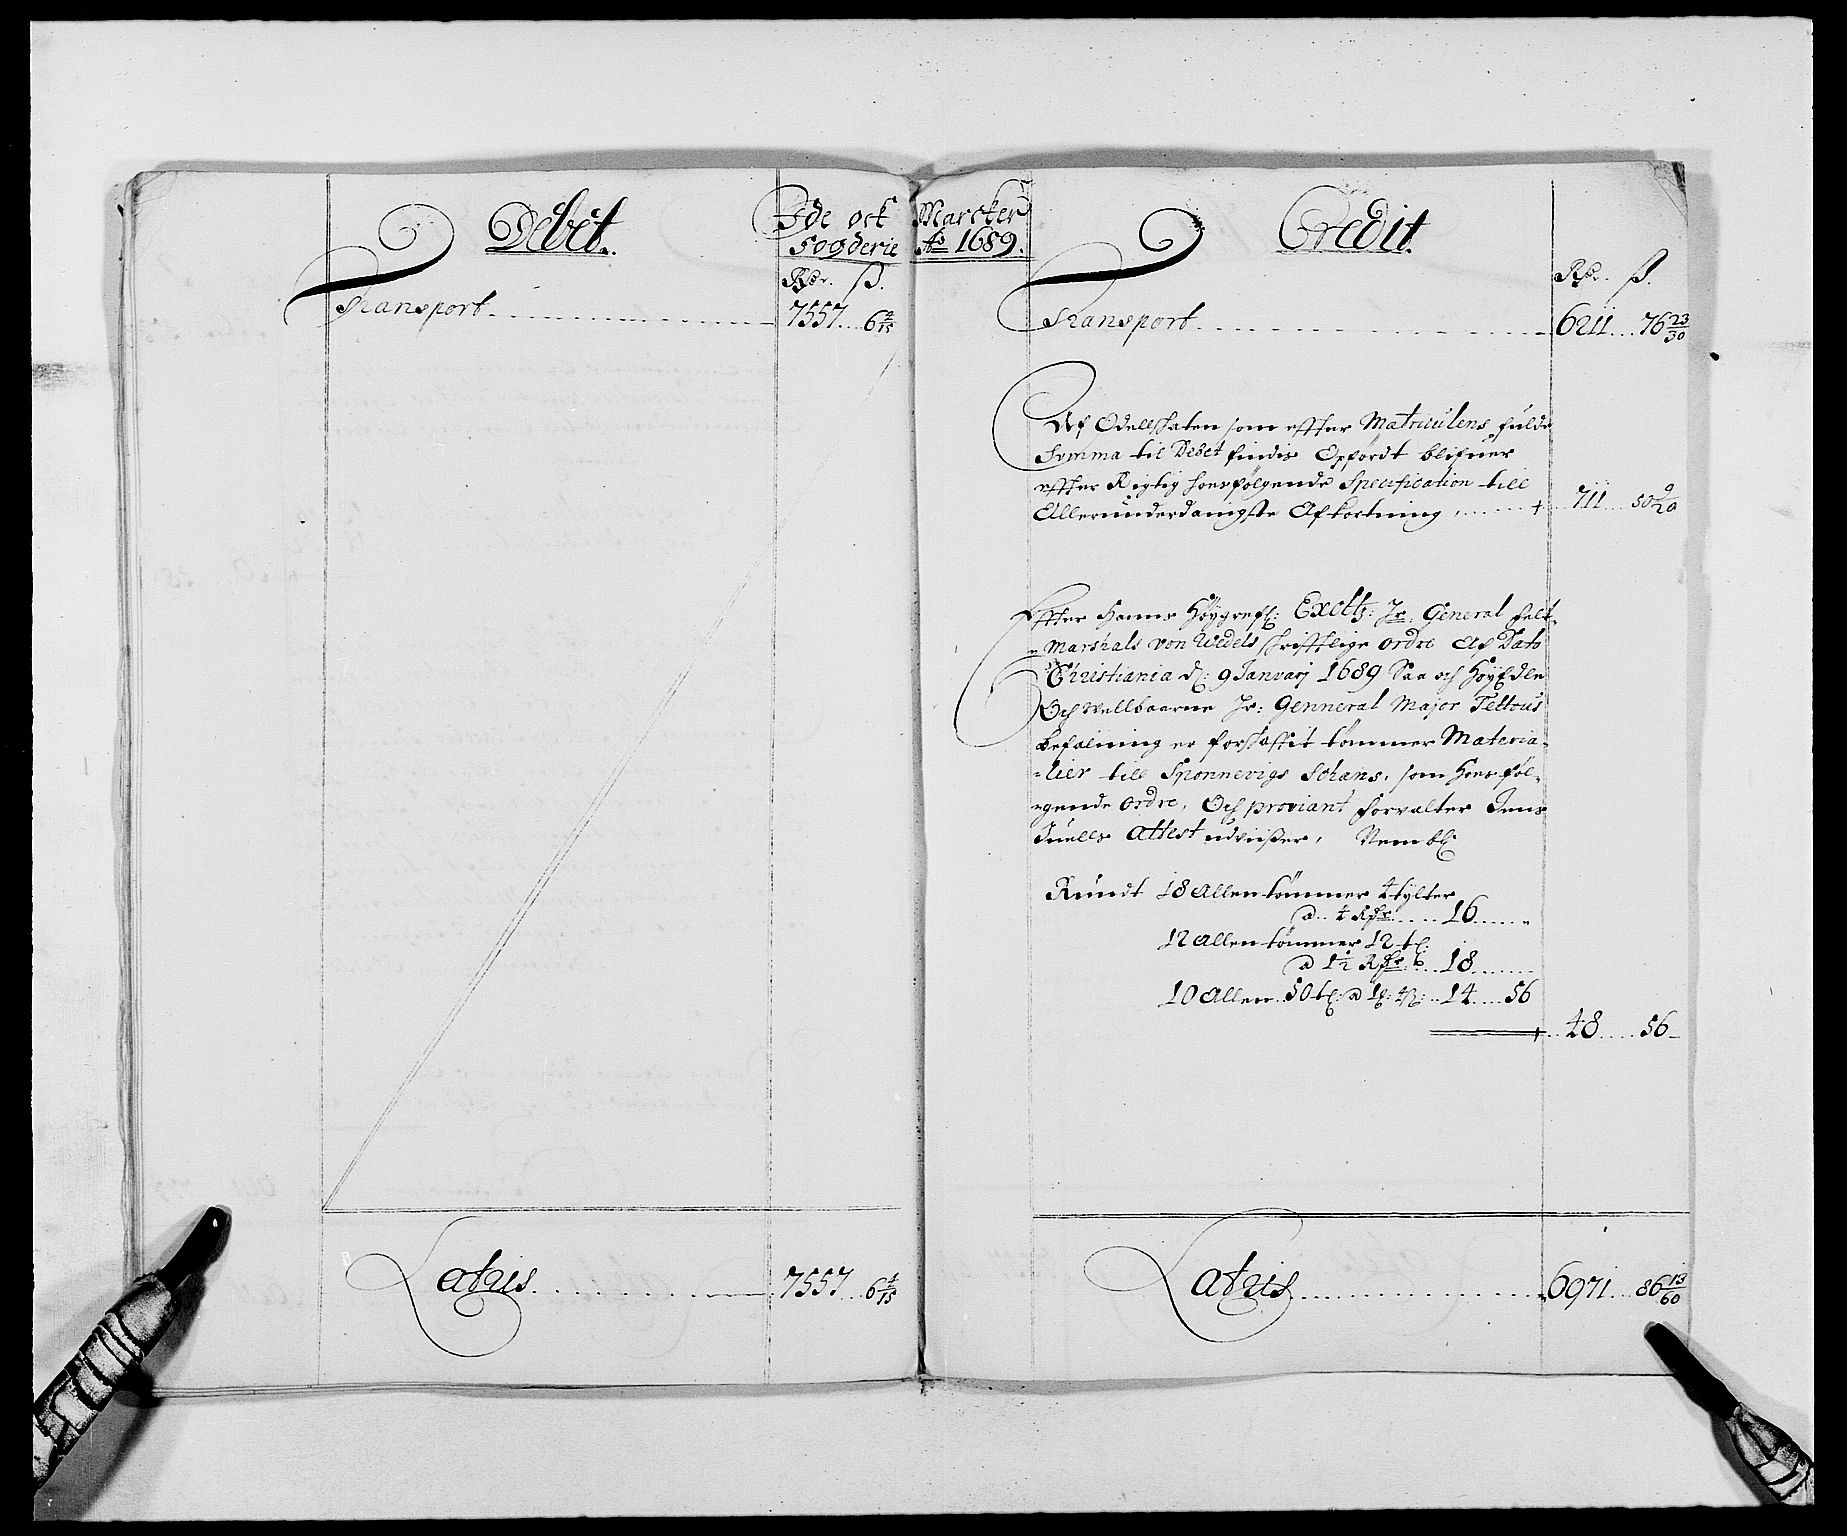 Debet.
Ide och
fogderie
Rdr. ß.
Transport 7557 6 2/15
Latris 7557 6 2/15
Marcker
Ao 1689.
Credit.
Rdr. ß.
Transport 6211 76 23/30
Af Odellskaten som effter Matriculens fulde
Summa til Debet findis Opførdt blifuer
effter Rigtig hoesfølgende Specification till
Allerunderdanigste Afkortning 711 50 9/20
Effter Hanns Høygrefl: Excell: Hr. General felt-
Marshals von Wedels skrifftlige ordre Af Dato
Christiania d: 9 Januarj 1689 Saa och HøyEdle
Och wellbaarne Hr: Genneral Major Tettous
befalning er forskaffit tømmer Materia-
-lier till Sponnevigs Schans, som hoesføl-
-gende ordre, Och proviant forvalter Jens
Juells Attest udviiser, Neml:
Rundt 18 Allen tømmer 4 tylter
a 4 Rdr 16
12 Allen tømmer 12 tl:
a 1½ Rdr 18
10 Allen 50 tl: a 14 56
48 56
Latris 6971 86 13/60